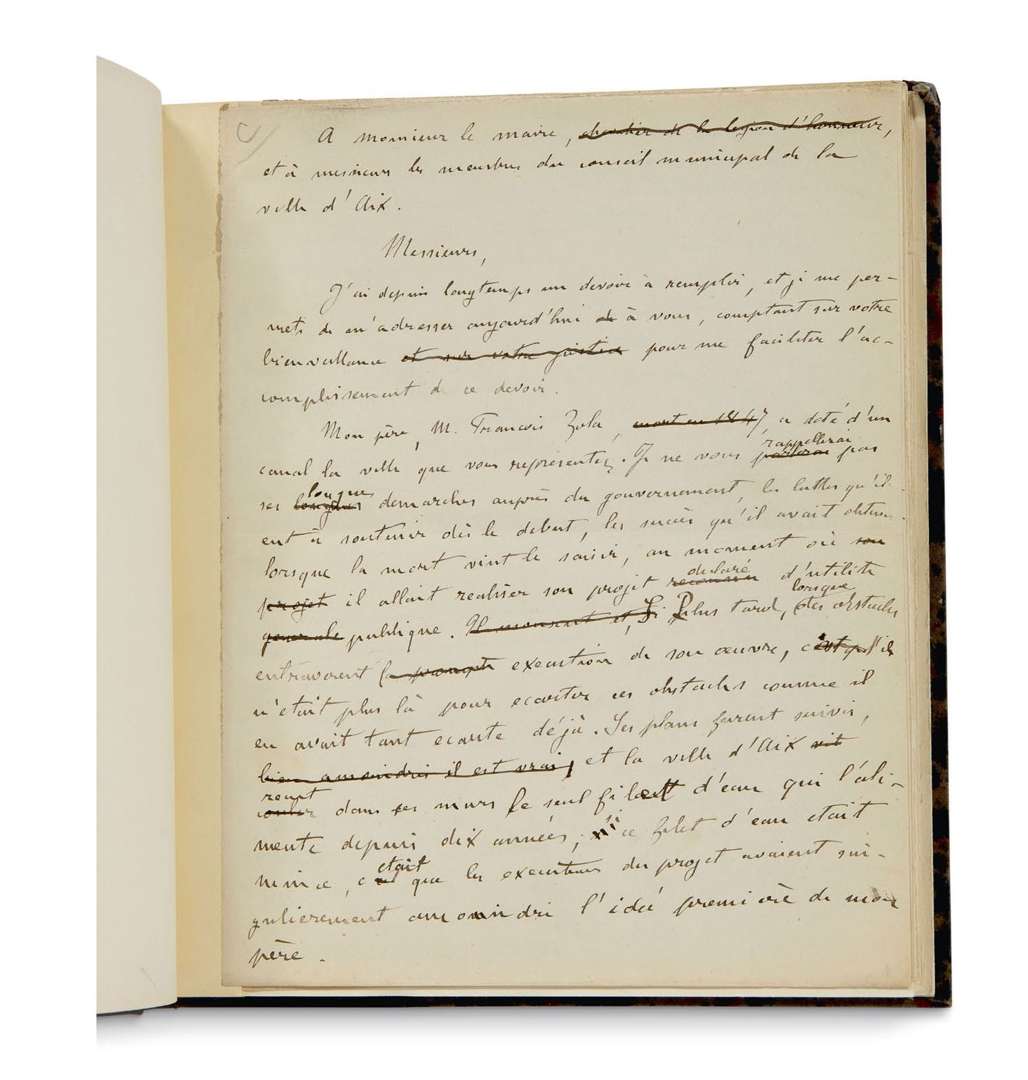 A monsieur le maire, chevalier de la légion d'honneur,
et à messieurs les membres du conseil municipal de la
ville d'Aix.
Messieurs,
J'ai depuis longtemps un devoir à remplir, et je me per-
mets de m'adresser aujourd'hui à vous, comptant sur votre
bienveillance et sur votre justice pour me faciliter l'ac-
complissement de ce devoir.
Mon père, M. François Zola, mort en 1847, a doté d'un
canal la ville que vous représentez. Je ne vous parlerai rappellerai pas
ses longues longues demarches auprès du gouvernement, les luttes qu'il
eut à soutenir dès le debut, les succès qu'il avait obtenus
lorsque la mort vint le saisir, au moment où son
projet il allait realiser son projet reconnu declaré d'utilité
generale publique. Il mourut et, Si Plus tard, lorsque des obstacles
entravèrent la prompte execution de son œuvre, c'est qu'il
n'était plus là pour ecarter ces obstacles comme il
en avait tant ecarté déjà. Ses plans furent suivis,
bien amoindris il est vrai, et la ville d'Aix vit
couler reçut dans ses murs le seul filet d'eau qui l'ali-
mente depuis dix années; si ce filet d'eau etait
mince, c'etait que les executeurs du projet avaient sin-
gulierement amoindri l'idée première de mon
père.